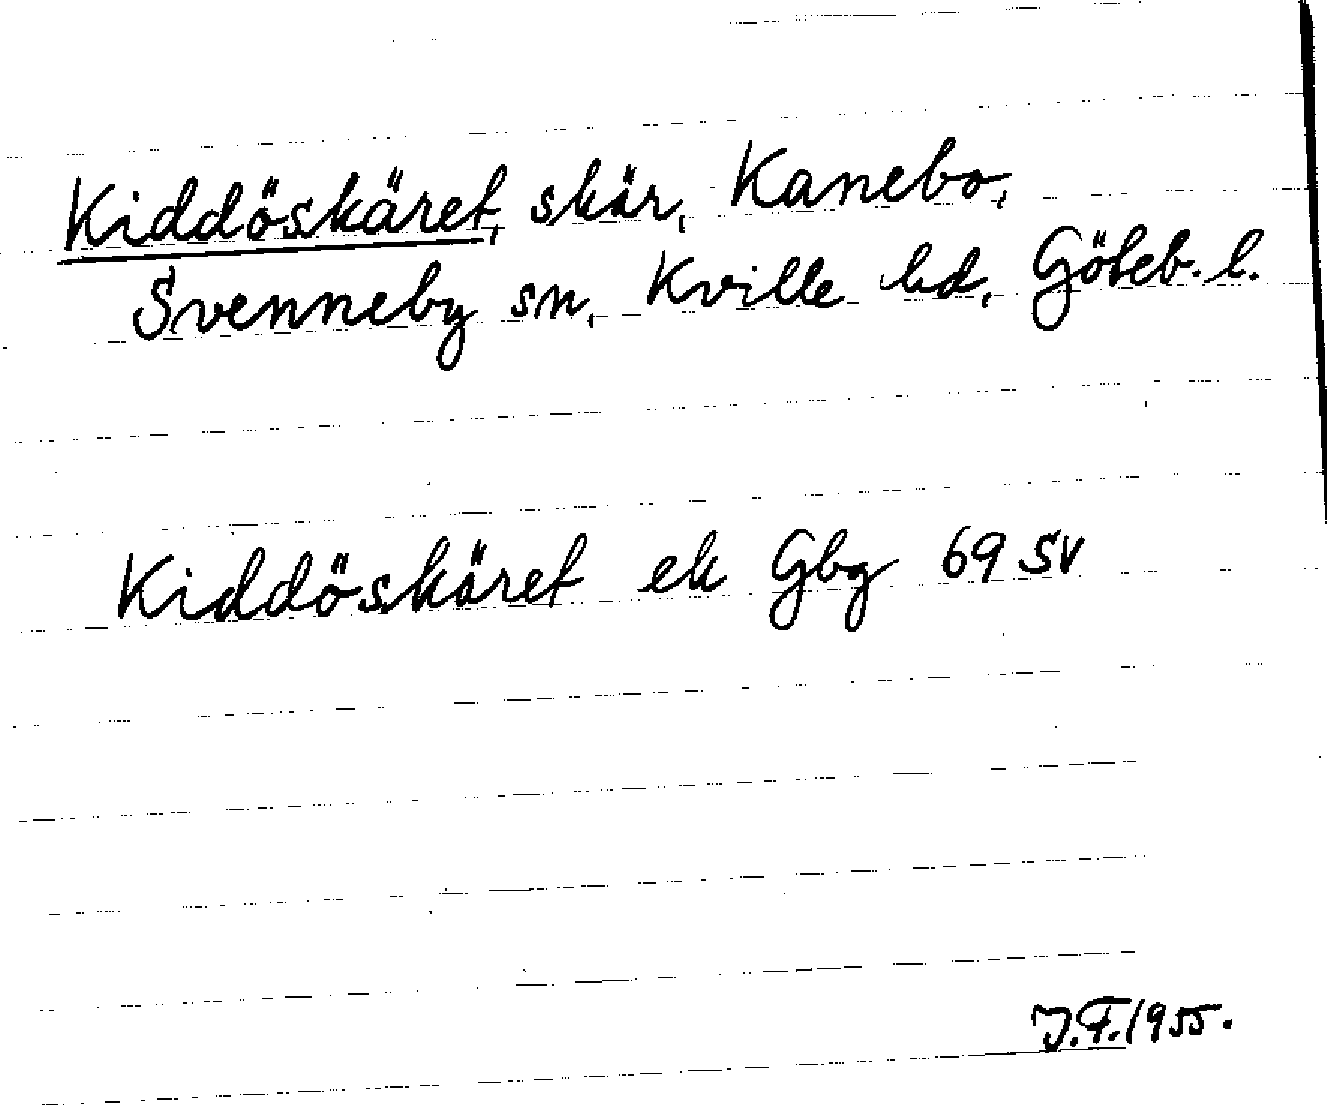 Kiddöskäret, skär, Kanebo,
Svenneby sn, Kville hd, Göteb. l.
Kiddöskäret ek Gbg 69 SV
J.F. 1955.